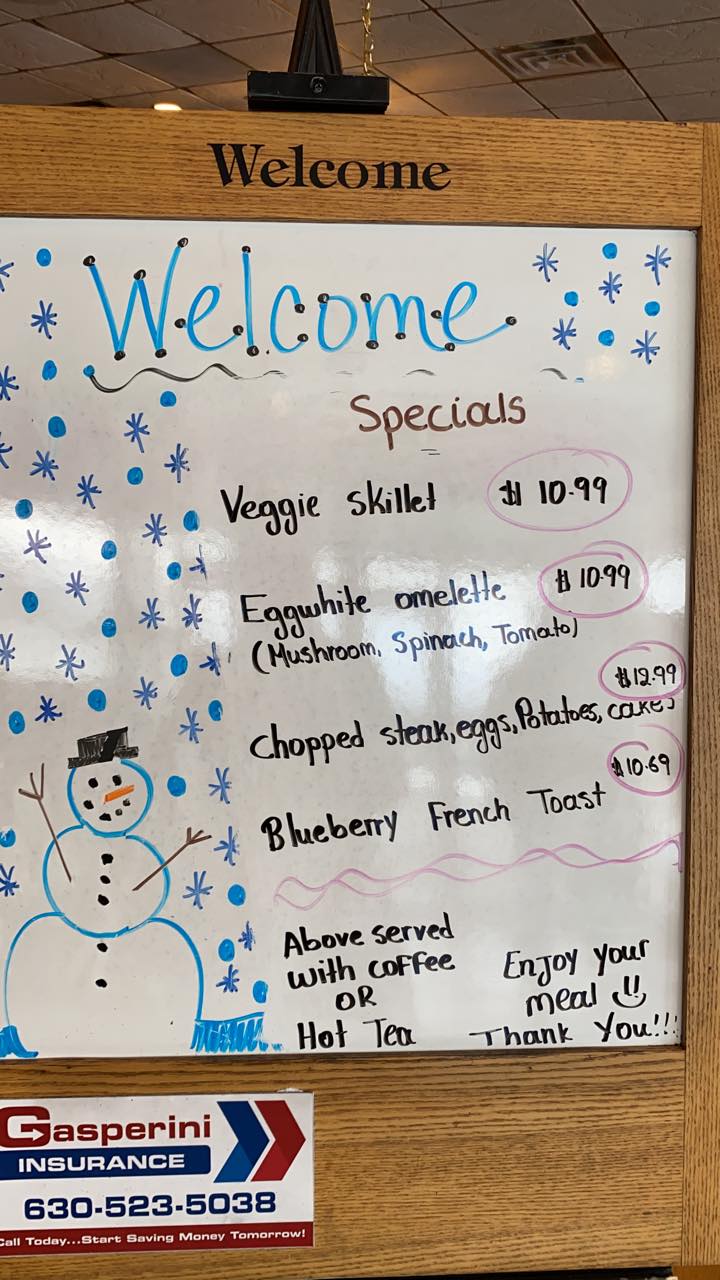 Welcome
Welcome
Specials
Veggie skillet $ 10.99
Eggwhite omelette $ 10.99
(Mushroom, Spinach, Tomato)
$12.99
Chopped steak, eggs, Potatoes, cakes
$10.69
Blueberry French Toast
Above served
with coffee
OR
Hot Tea
Enjoy your
meal
Thank You!!!
Gasperini
INSURANCE
630-523-5038
Call Today...Start Saving Money Tomorrow!